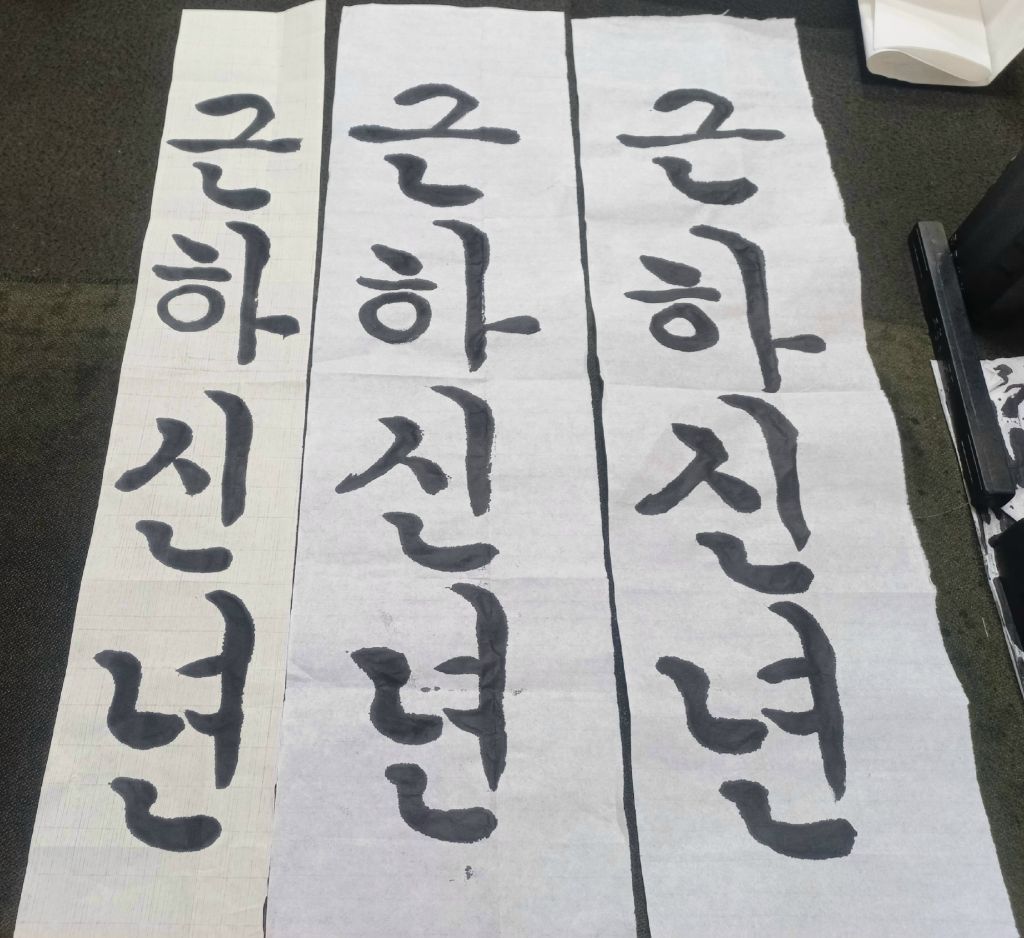 근하신년
근하신년
근하신년